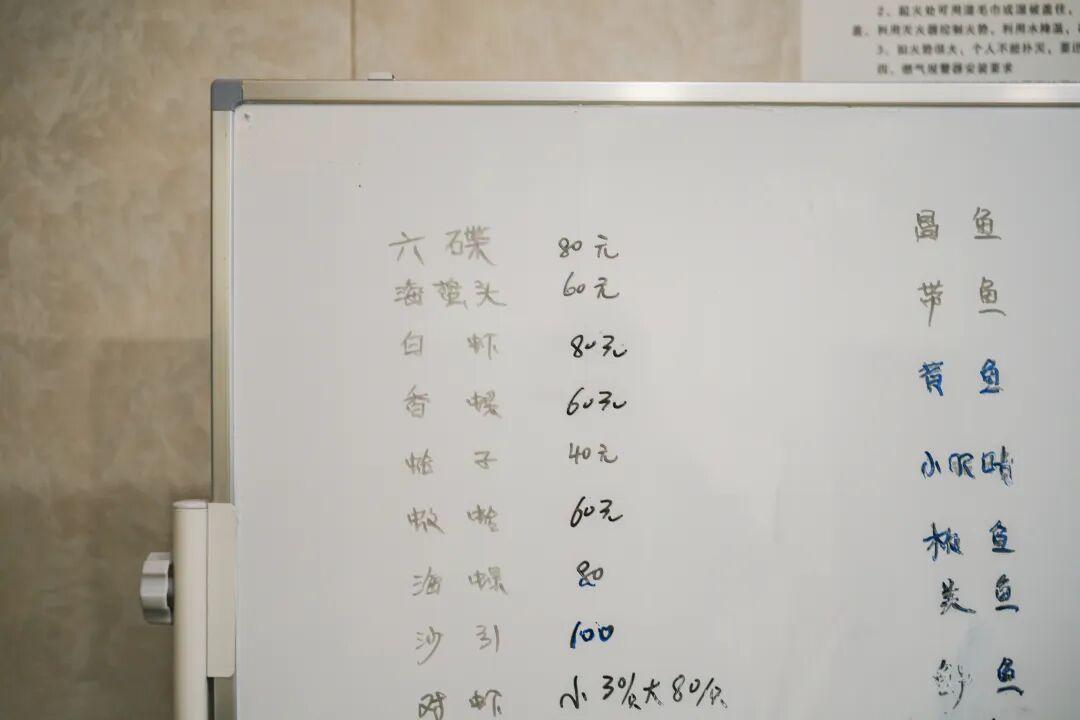 2、起火处可用湿毛巾或湿被盖住,
盖、利用灭火器控制火势,利用水降温,
3、如火势很大,个人不能扑灭,要迅
四、燃气报警器安装要求
六碟 80元
海蜇头 60元
白虾 80元
香螺 60元
蛤子 40元
蚬蛤 60元
海螺 80
沙引 100
对虾 小30/只大80/只
昌鱼
带鱼
黄鱼
小眼睛
鱼
鱼
鱼